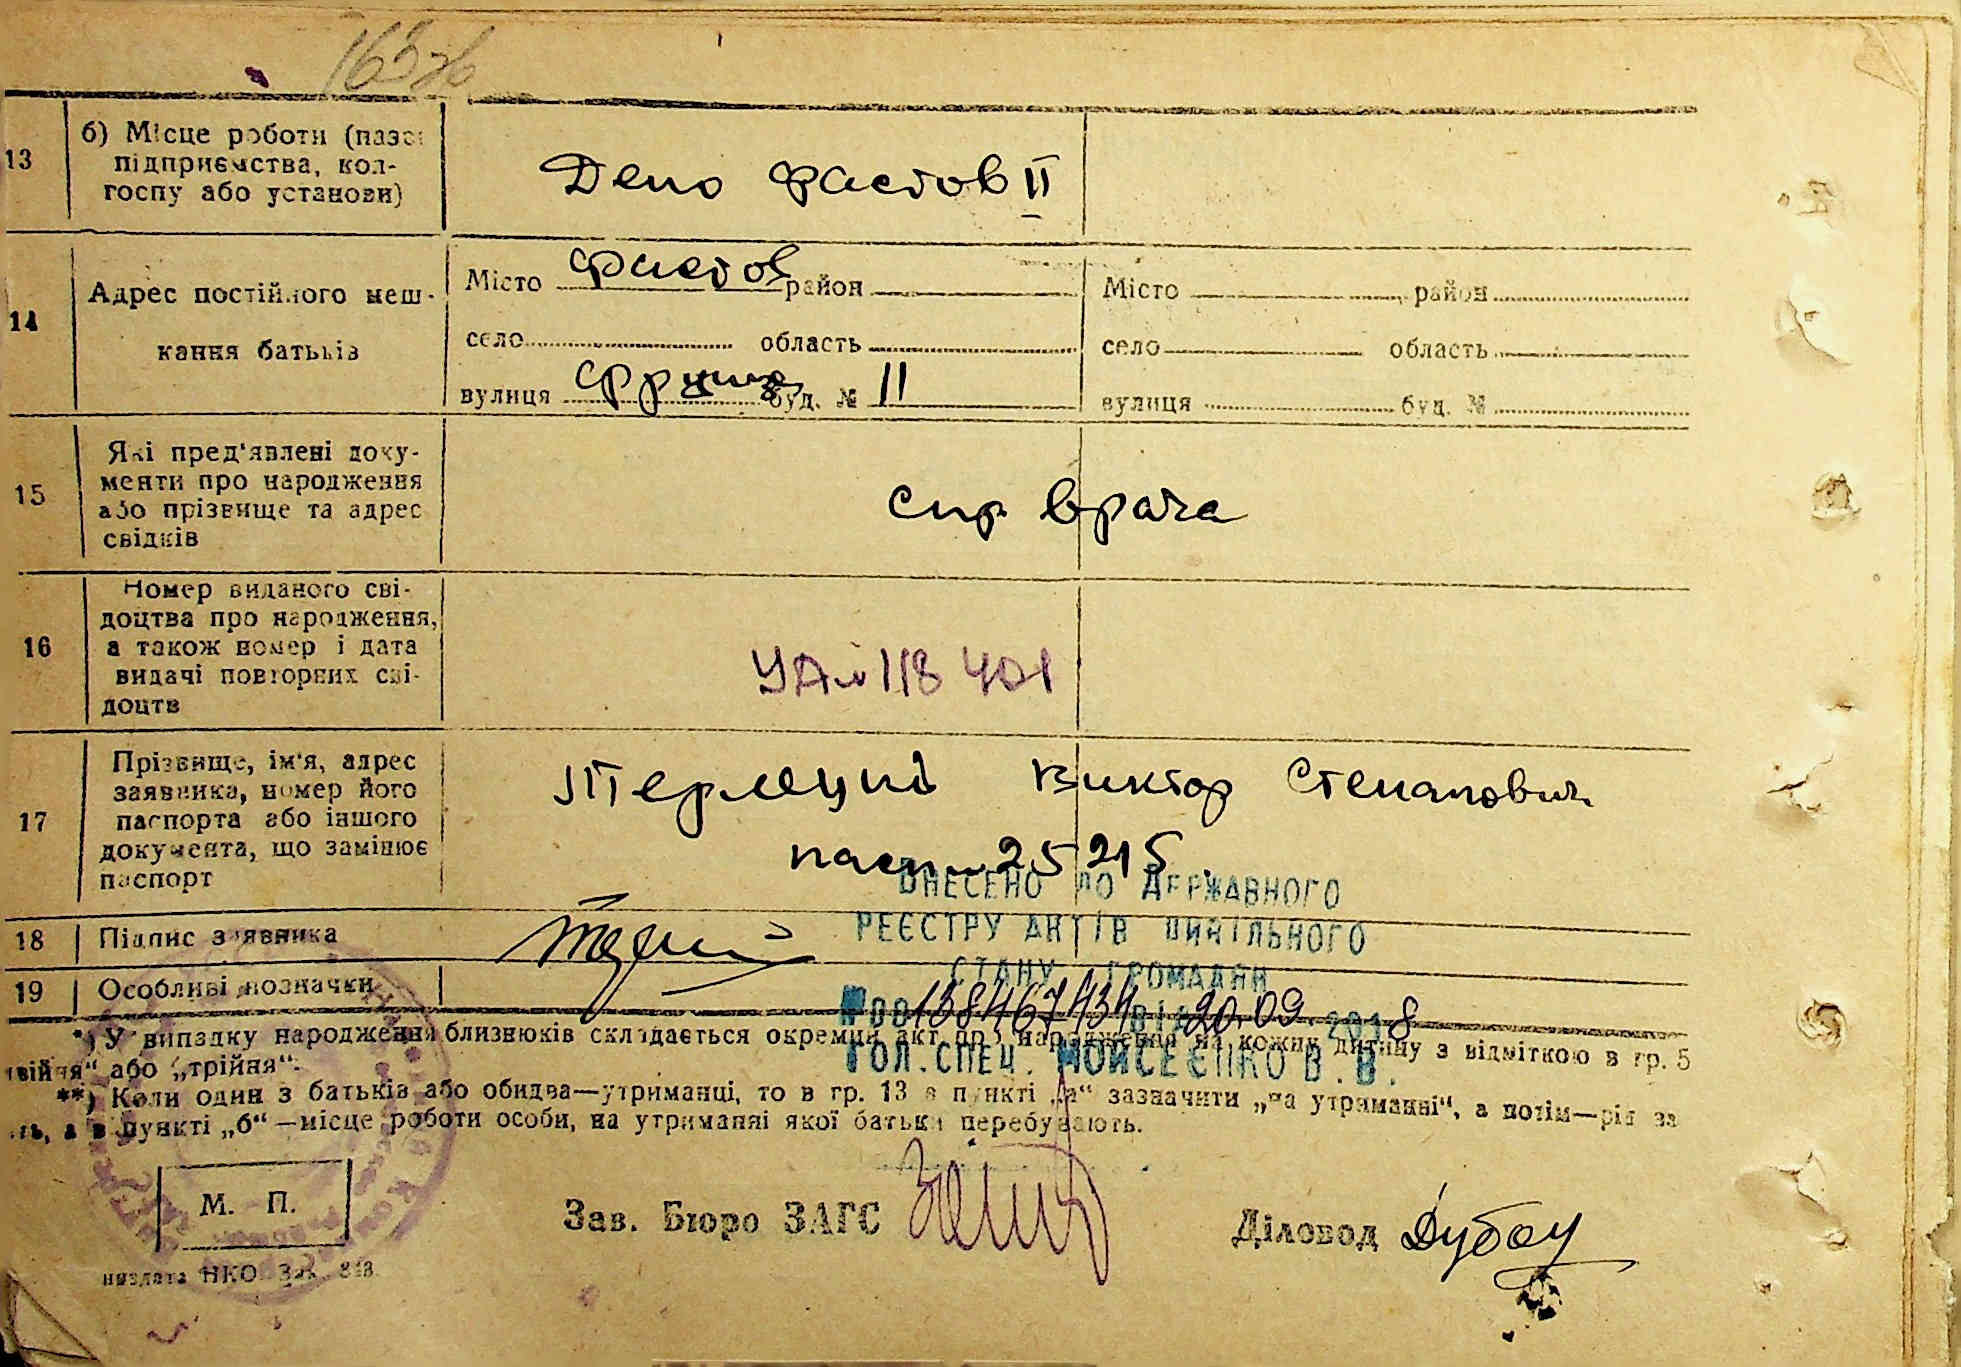 13
б) Місце роботи (назва
підприємства, кол-
госпу або установи)
Депо Фастов II
14
Адрес постійного меш-
кання батьків
Місто Фастов район
село область
вулиця буд. № 11
Місто район
село область
вулиця буд. №
15
Які пред'явлені доку-
менти про народження
або прізвище та адрес
свідків
Спр врача
16
Номер виданого сві-
доцтва про народження,
а також номер і дата
видачі повторних сві-
доцтв
УА № 118 401
17
Прізвище, ім'я, адрес
заявника, номер його
паспорта або іншого
документа, що замінює
паспорт
Виктор Степанович
пасп № 25215
ВНЕСЕНО ДО ДЕРЖАВНОГО
РЕЄСТРУ АКТІВ ЦИВІЛЬНОГО
СТАНУ ГРОМАДЯН
18
Підпис заявника
19
Особливі позначки
№00138467434 від 20.09.2018
ГОЛ.СПЕЦ. МОЙСЕЄНКО В.В.
*) У випадку народження близнюків складається окремий акт про народження на кожну дитину з відміткою в гр. 5
„двійня“ або „трійня“.
**) Коли один з батьків або обидва—утриманці, то в гр. 13 в пункті „а“ зазначити „на утриманні“, а потім—рід за
а в пункті „б“—місце роботи особи, на утриманні якої батьки перебувають.
М. П.
Зав. Бюро ЗАГС
Діловод
НКО Зак. 813